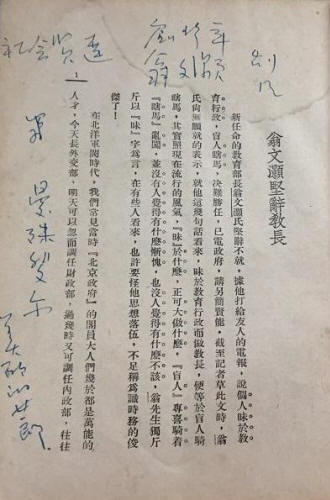 社会贤达
翁文灝
翁文灝堅辭教長
新任命的教育部長翁文灝氏堅辭不就，據他打給友人的電報，說「個人昧於教
育行政，盲人瞎馬，決難勝任，已電政府，請另簡賢能，」截至記者草此文時，翁
氏尚無願就的表示，就他這幾句話看來，昧於教育行政而做教長，便等於盲人騎
瞎馬，其實照現在流行的風氣，『昧』於什麼，正可大做什麼，『盲人』專喜騎着
『瞎馬』亂闖，並沒有人覺得有什麼慚愧，也沒人覺得有什麼不該，翁先生獨斤
斤以『昧』字爲言，在有些人看來，也許要怪他思想落伍，不足稱爲識時務的俊
傑了！
在北洋軍閥時代，我們常見當時『北京政府』的閣員大人們幾於都是萬能的
人才，今天長外交部，明天可以忽而調任財政部，過幾時又可調任內政部，往往
1